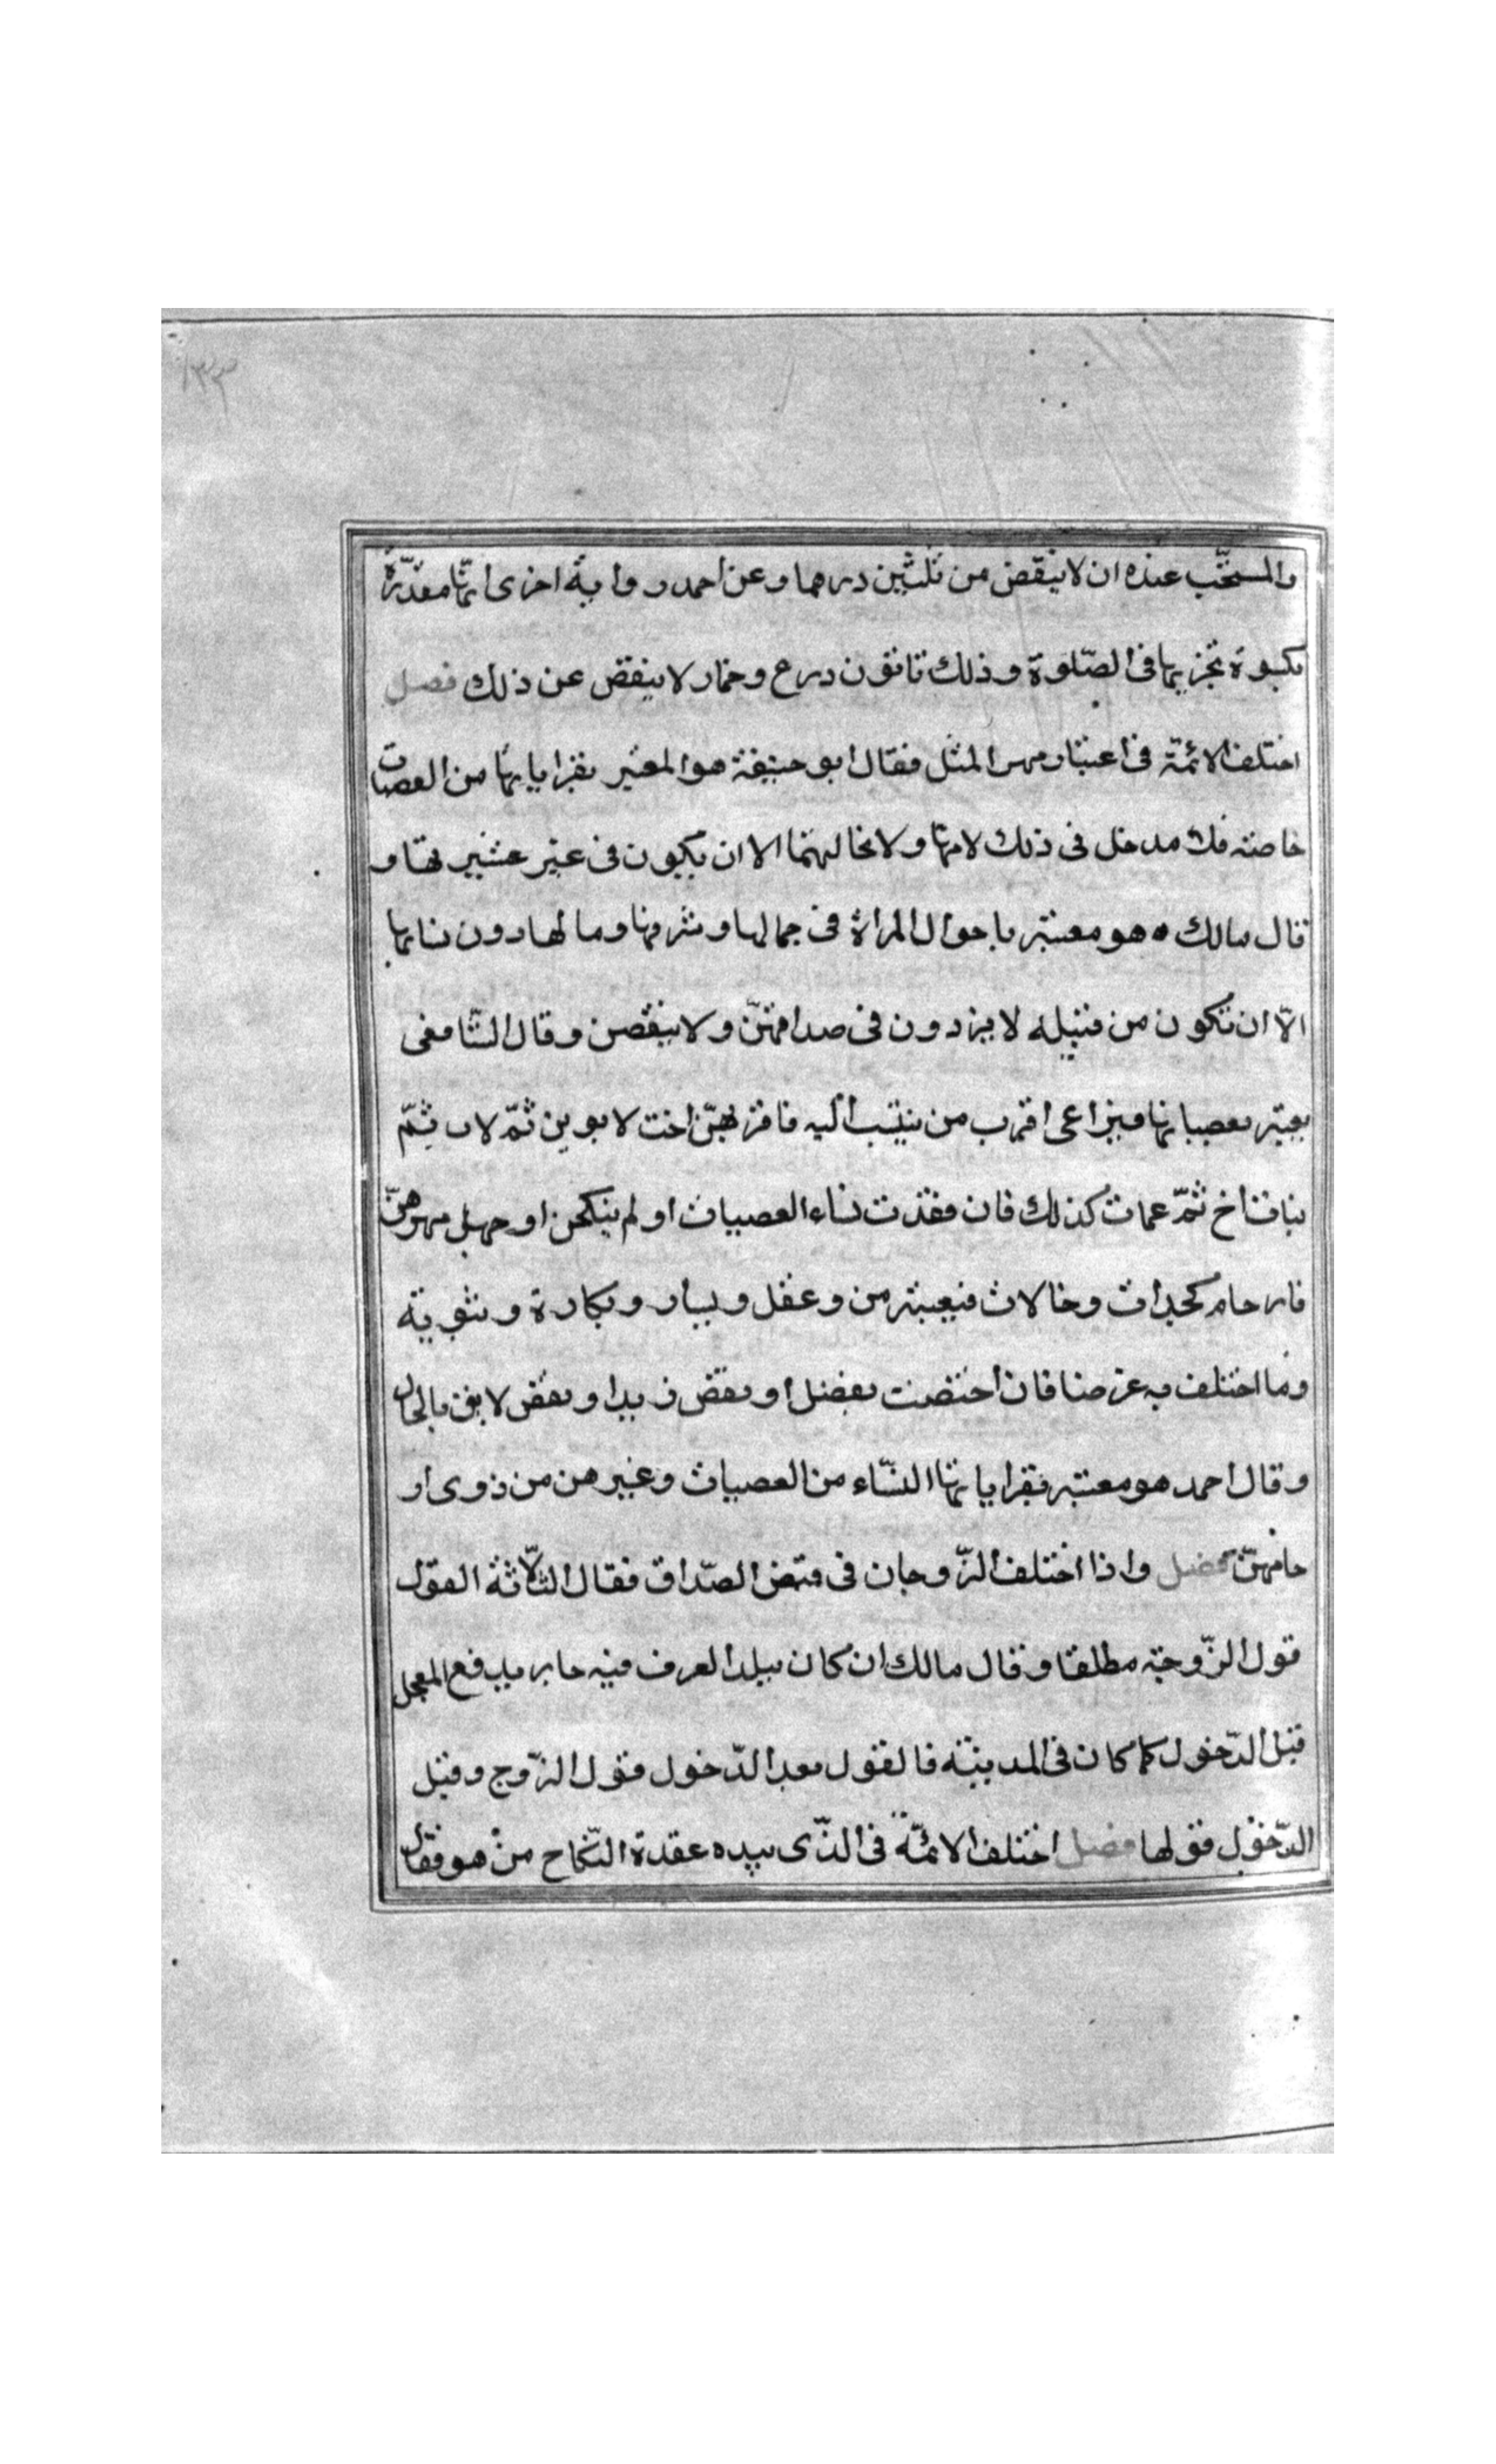 ١٣٣
والمستحّب عنده ان لا ينقض من ثلثين درهما وعن احمد رواية اخرى انّها مقدّرة
بكسوة تجزيها فى الصّلوة وذلك ثا ثون درع وخمار لا ينقض عن ذلك فصل
اختلف الائمّة فى اعتبار مهر المثل فقال ابو حنيفة هو المعتبر بقراباتها من العصبات
خاصة فلا مدخل فى ذلك لامها ولا لخالتها الا ان يكون فى غير عشيرتها و
قال مالك ه هو معتبر باحوال المراة فى جمالها وشرفها ومالها دون نسابها
الّا ان تكون من قبيله لا يزدون فى صداقهنّ ولا ينقصن وقال الشّافعى
يعتبر بعصباتها فيراعى اقرب من ينتسب اليه فاقربهنّ اخت لابوين ثمّ لاب ثمّ
بنات اخ ثمّ عمات كذلك فان فقدت نساء العصبات او لم ينكحن او جهل مهرهنّ
فارحام كجدات وخالات فيعتبر من وعقل ويسار وبكارة وثيوبة
وما اختلف به غرضا فان اختصت بفضل او نقض زيدا ونقض لايق بالحال
وقال احمد هو معتبر بقراباتها النّساء من العصبات وغيرهن من ذوى ار
حامهنّ فصل واذا اختلف الزّوجان فى قبض الصّداق فقال الثّلاثة القول
قول الزّوجة مطلقا وقال مالك ان كان ببلد العرف فيه جار بدفع المعجل
قبل الدّخول كما كان فى المدينة فالقول بعد الدّخول قول الزّوج وقبل
الدّخول قولها فصل اختلف الائمّة فى الذّى بيده عقدة النّكاح من هو فقال